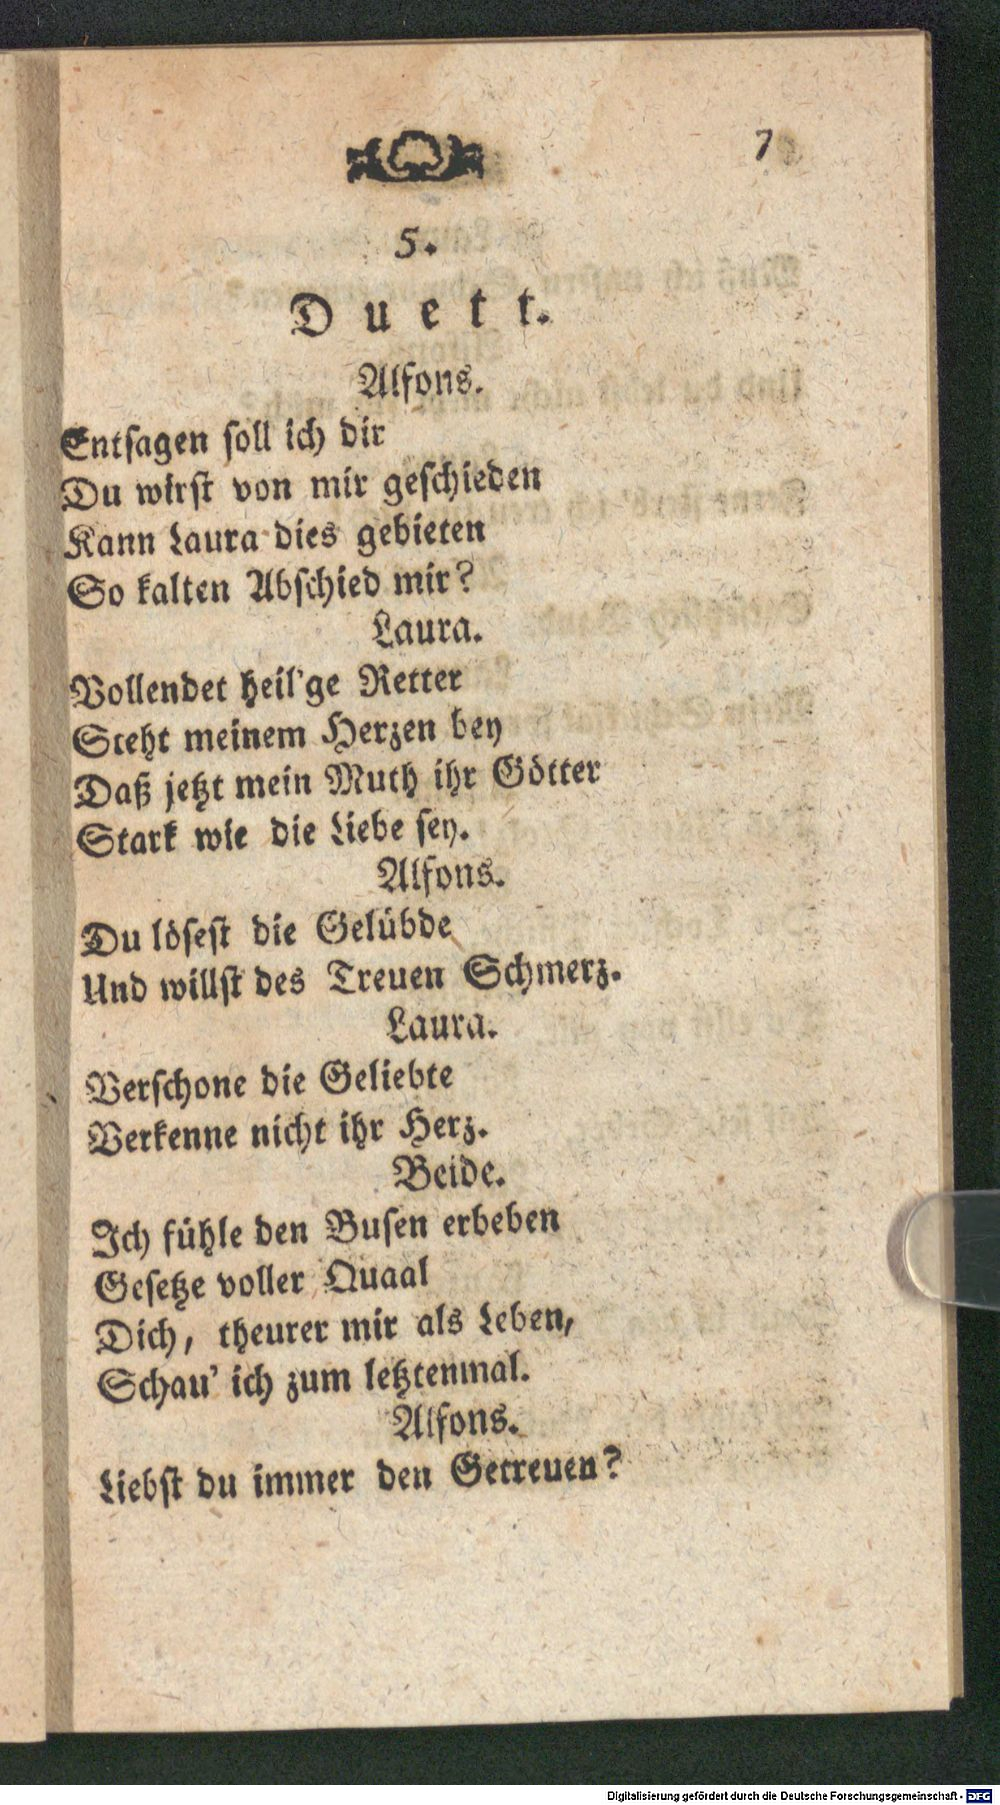 7
5.
Duett.
Alfons.
Entsagen soll ich dir
Du wirst von mir geschieden
Kann Laura dies gebieten
So kalten Abschied mir?
Laura.
Vollendet heil'ge Retter
Steht meinem Herzen bey
Daß jetzt mein Muth ihr Götter
Stark wie die Liebe sey.
Alfons.
Du lösest die Gelübde
Und willst des Treuen Schmerz.
Laura.
Verschone die Geliebte
Verkenne nicht ihr Herz.
Beide.
Ich fühle den Busen erbeben
Gesetze voller Quaal
Dich, theurer mir als Leben,
Schau' ich zum letztenmal.
Alfons.
Liebst du immer den Getreuen?
Digitalisierung gefördert durch die Deutsche Forschungsgemeinschaft - DFG